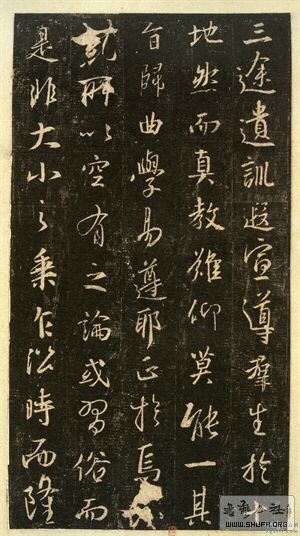 三途遺訓遐宣導羣生於
地然而真教難仰莫能一其
旨歸曲學易遵耶正於焉
所以空有之論或習俗而
是非大小之乘乍沿時而隆
公社
WWW.SHUFA.ORG